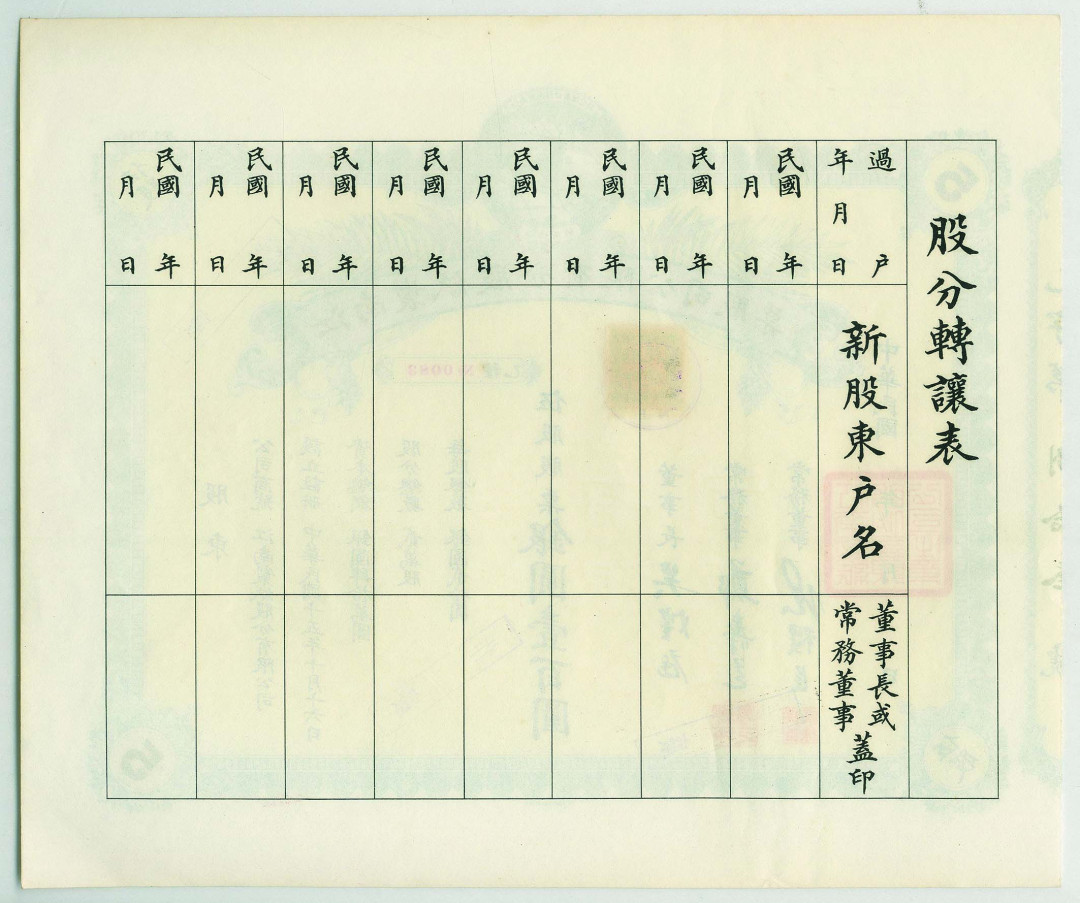 股分轉讓表
過戶
年月日
新股東戶名
董事長或
常務董事
蓋印
民國 年
月 日
民國 年
月 日
民國 年
月 日
民國 年
月 日
民國 年
月 日
民國 年
月 日
民國 年
月 日
民國 年
月 日